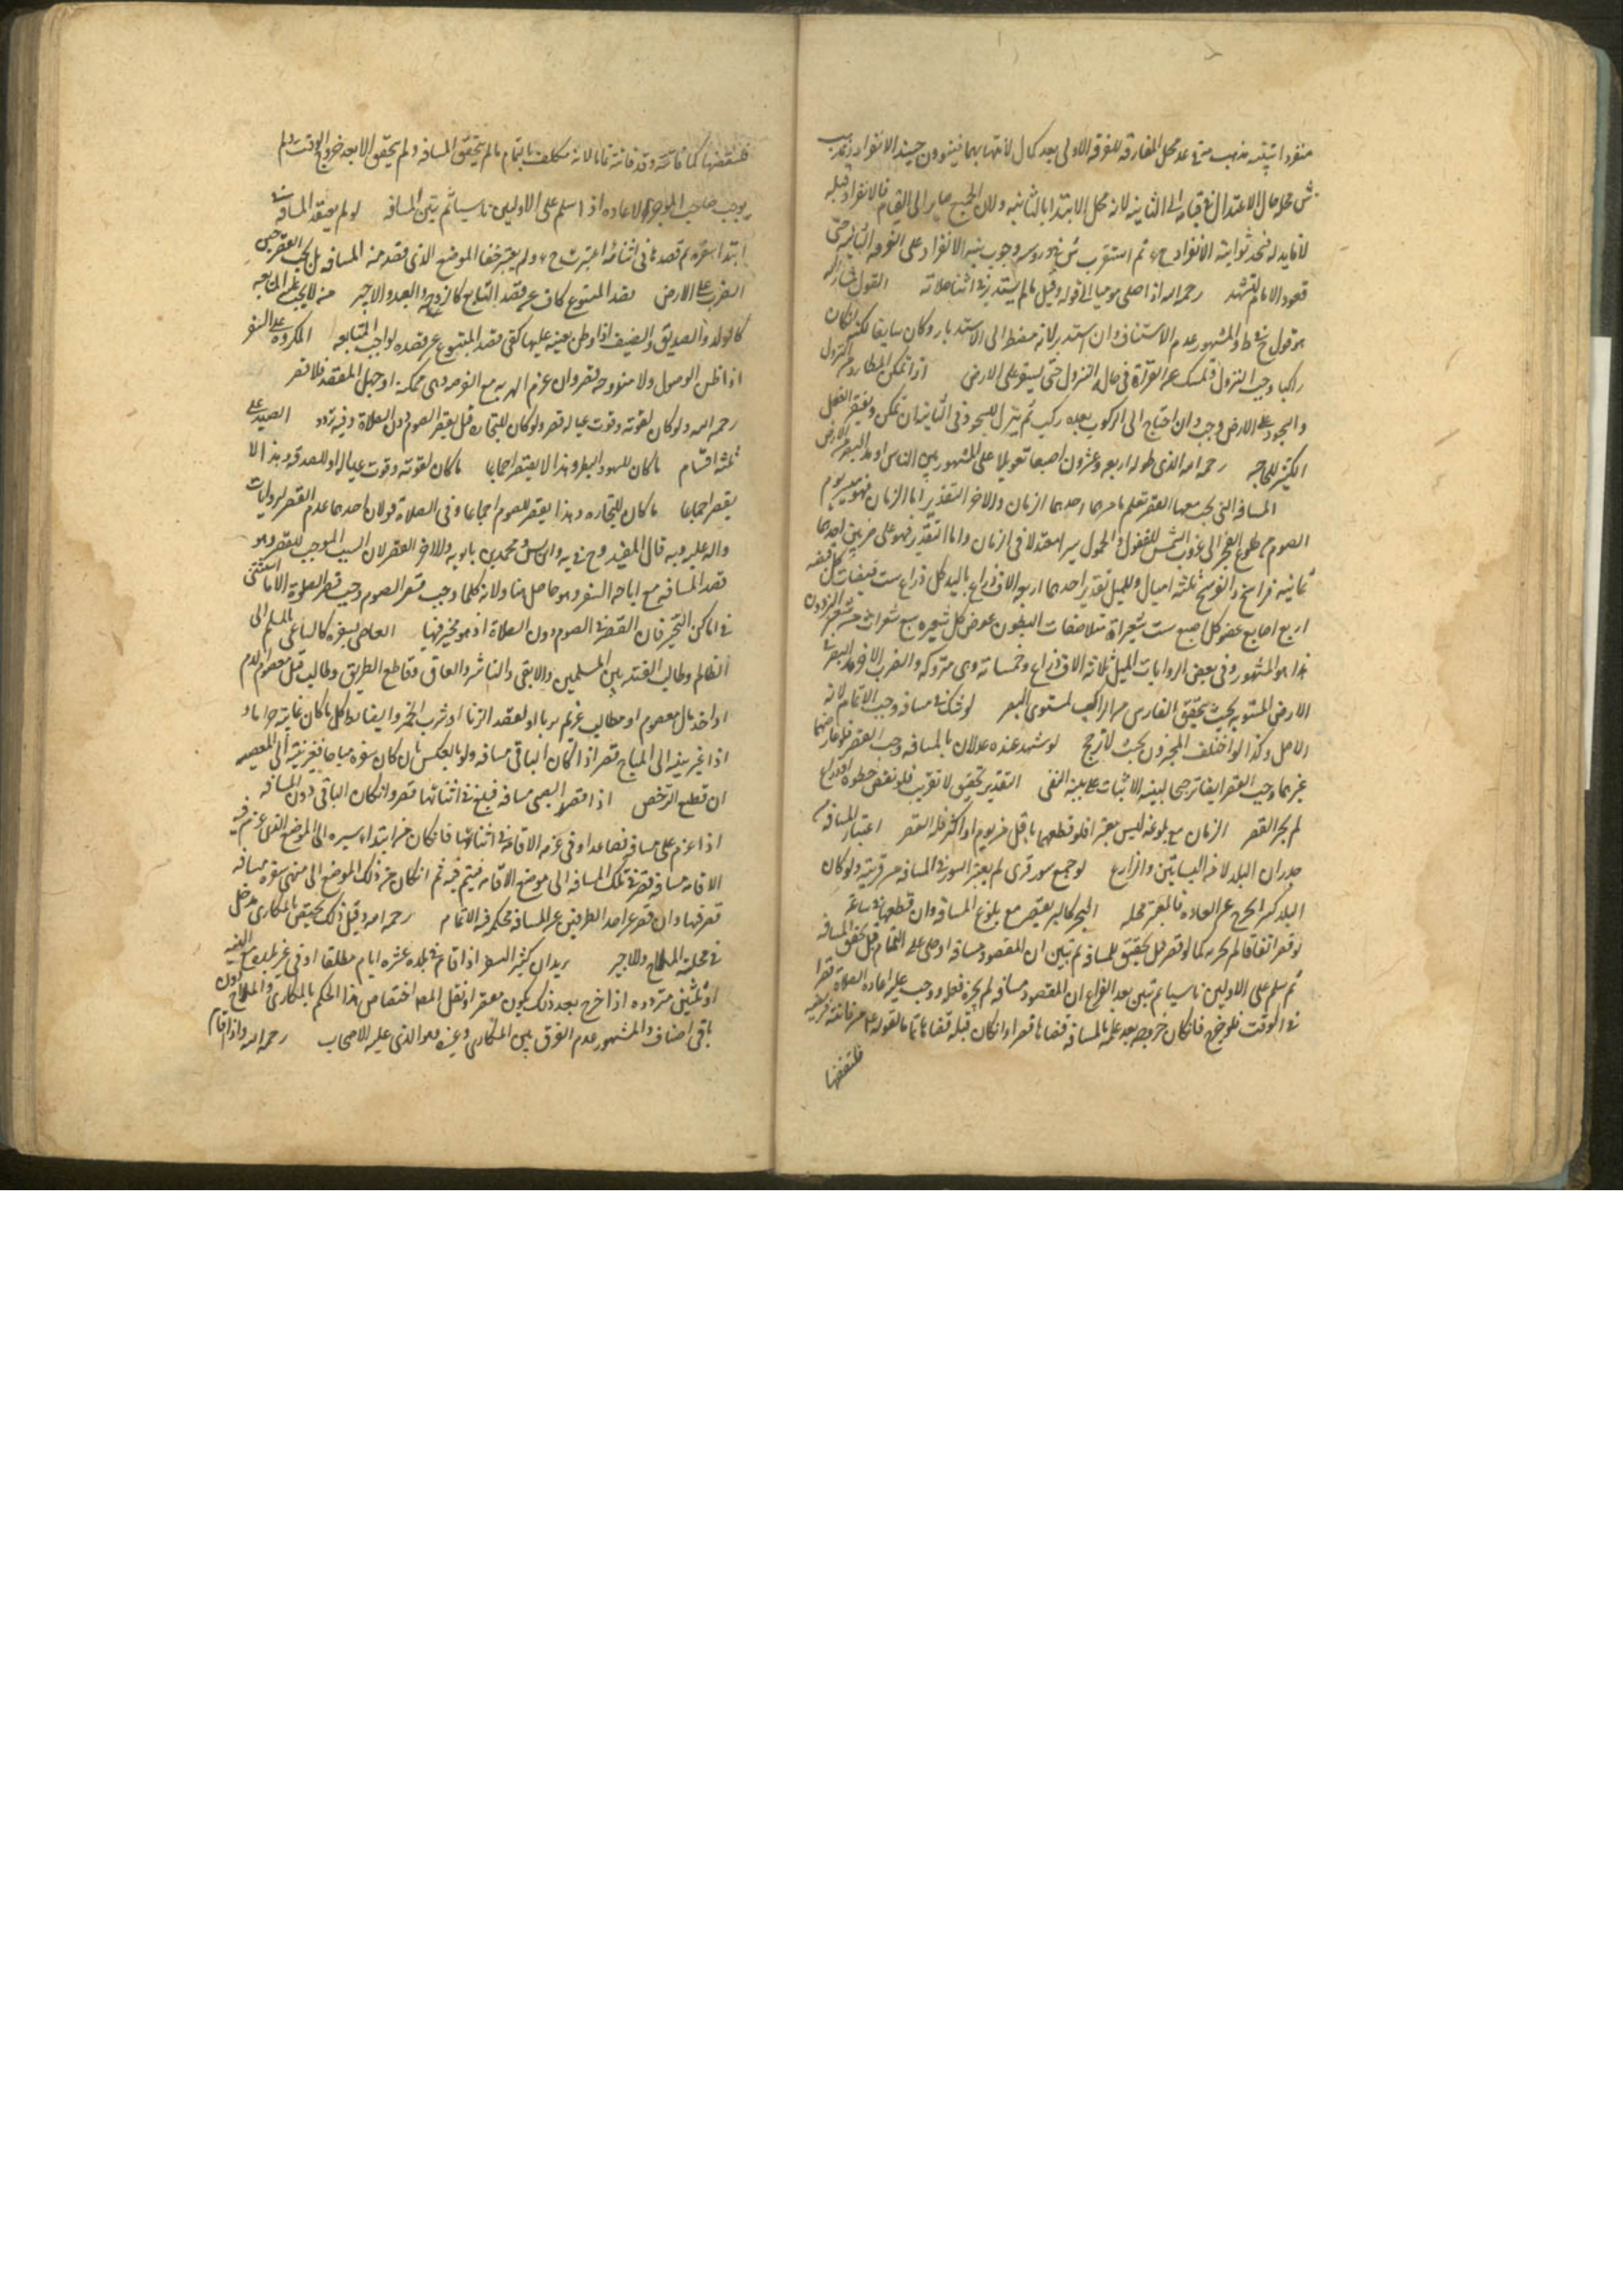 منفردا بنية مذهب عند محل المفارقة للفرقة الاولى بعد كمال لانتهائهما فينوون حينئذ الانفراد
محله حال الاعتدال في قيامه الى الثانية لانه محل الابتداء بالثانية ولان الجميع صاير الى القيام فالانفراد قبله
لا فايده له فتجب نية الانفراد ثم استقرب وجوب نية الانفراد على الفرقة الثانية حتى
قعود الامام للتشهد رحمه الله اذا صلى موميا الى قوله وقيل ما لم يستدبر في اثناء صلاته القول
هو قول والمشهور عدم الاستيناف وان استدبر لانه مضطر الى الاستدبار وكان سايغا
راكبا وجب النزول ويمسك عن القراة في حال النزول حتى يستقر على الارض اذا تمكن
والسجود على الارض وجب وان احتاج الى الركوب بعده ركب ثم ينزل للسجود في الثانية ان تمكن ويغتفر الفعل
الكثير للحاجه رحمه الله الذي طوله اربعة وعشرون اصبعا تعويلا على المشهور بين الناس او مد البصر من الارض
المسافة التي يجب معها القصر تعلم بامرين احدهما الزمان والاخر التقدير اما الزمان فهو مسير يوم
الصوم من طلوع الفجر الى غروب الشمس للقفول والحمول سيرا معتدلا في الزمان واما التقدير فهو على ضربين احدهما
ثمانية فراسخ والفرسخ ثلثة اميال وللميل تقدير احدهما اربعة الاف ذراع باليد كل ذراع ست قبضات كل قبضه
اربع اصابع عرض كل اصبع ست شعيرات متلاصقات البطون عرض كل شعيره سبع شعرات من شعر البرذون
هذا هو المشهور وفي بعض الروايات الميل ثلاثة الاف ذراع وخمسمائة وهي متروكة والضرب الاخر مد البصر في
الارض المستوية بحيث يتحقق الفارس من الراكب لمستوى البصر لو شك في مسافة وجب الاتمام لانه
الاصل وكذا لو اختلف المخبرون بحيث لا ترجيح لو شهد عنده عدلان بالمسافة وجب القصر فلو عارضهما
غيرهما وجب القصر ايضا ترجيحا لبينة الاثبات على بينة النفي التقدير تحقيق لا تقريب فلو نقص خطوة او ذراع
لم يجز القصر الزمان مع بلوغه ليس معتبرا فلو قطعها باقل من يوم او اكثر فله القصر اعتبار المسافة من
جدران البلد لا من البساتين والمزارع لو جمع سور قرى لم يعتبر السور في المسافة من قريته ولو كان
البلد كبيرا يخرج عن العادة فالمعتبر محله البحر كالبر يقصر مع بلوغ المسافة وان قطعها في ساعة
لو قصر اتفاقا لم يجزيه كما لو قصر قبل تحقيق المسافة ثم تبين ان المقصود مسافة او صلى على التمام قبل تحقق المسافة
ثم سلم على الاوليين ناسيا ثم تبين بعد الفراغ ان المقصود مسافة لم يجزه فعله ووجب عليه اعادة الصلاة قصرا
في الوقت فلو خرج فان كان خروجه بعد علمه بالمسافة قضاها قصرا وان كان قبله قضاها تماما لقوله من فاتته فريضة
فليقضها
فليقضها كما فاتته وقد فاتته تماما لانه مكلف بالتمام ما لم يتحقق المسافة ولم يتحقق الا بعد خروج الوقت ولم
يوجب صاحب الموجز الاعاده اذا سلم على الاوليين ناسيا ثم يتبين المسافة لو لم يقصد المسافة في
ابتداء سفره ثم قصدها في اثنائه اعتبرت ولم يعتبر خفاء الموضع الذي قصد منه المسافة بل يجب القصر حين
الضرب على الارض قصد المتبوع كاف عن قصد التابع كالزوجة والعبد والاجير
كالولد والصديق والضيف اذا وطن بعينه عليها كفى قصد المتبوع عن قصده لواجب المتابعه المكروه على السفر
اذا ظن الوصول ولا مندوحة قصر وان عزم الهرب مع الفرصة وهي ممكنة او جهل المقصد فلا قصر
رحمه الله ولو كان لقوته وقوت عياله قصر ولو كان للتجاره قيل يقصر الصوم دون الصلاة وفيه تردد الصيد على
ثلثة اقسام ما كان للهو والبطر وهذا لا يقصر اجماعا ما كان لقوته وقوت عياله او للصدقة وهذا الا
يقصر اجماعا ما كان للتجاره وهذا يقصر الصوم اجماعا وفي الصلاة قولان احدهما عدم القصر لروايات
واله عليه وبه قال المفيد ومحمد بن بابويه والاخر القصر لان السبب الموجب للقصر وهو
قصد المسافة مع اباحة السفر وهو حاصل هنا ولانه كلما وجب قصر الصوم وجب قصر الصلوة الا ما استثنى
في اماكن التخير فان القصر في الصوم دون الصلاة اذ هو مخير فيها العاصي بسفره كالساعي بالمسلم الى
الظالم وطالب الفتنة بين المسلمين والابق والناشز والعاق وقاطع الطريق وطالب قتل معصوم الدم
او اخذ مال معصوم او مطالب غريم بربا او لقصد الزنا او شرب الخمر والضابط كل ما كان غايته حراما
اذا غير نيته الى المباح قصر اذا كان الباقي مسافة ولو بالعكس بان كان سفره مباحا فغير نيته الى المعصيه
انقطع الترخص اذا قصد الصبي مسافة فبلغ في اثنائها قصر وان كان الباقي دون المسافة
اذا عزم على مسافة فصاعدا وفي عزمه الاقامة في اثنائها فان كان من ابتداء سيره الى الموضع الذي عزم فيه
الاقامة مسافة قصر في تلك المسافة الى موضع الاقامة فيتم فيه ثم ان كان من ذلك الموضع الى منتهى سفره مسافة
قصر فيها وان قصر عن احد الطرفين عن المسافة فحكم فيه الاتمام رحمه الله وقيل ذلك يختص بالمكاري فيدخل
في محله الملاح والاجير يريد ان كثير السفر اذا اقام في بلده عشرة ايام مطلقا او في غير بلده مع النيه
او ثلثين متردده اذا خرج بعد ذلك يكون مقصرا ونقل المصـ اختصاص هذا الحكم بالمكاري والملاح دون
باقي اصناف والمشهور عدم الفرق بين المكاري وغيره وهو الذي عليه الاصحاب رحمه الله واذا اقام